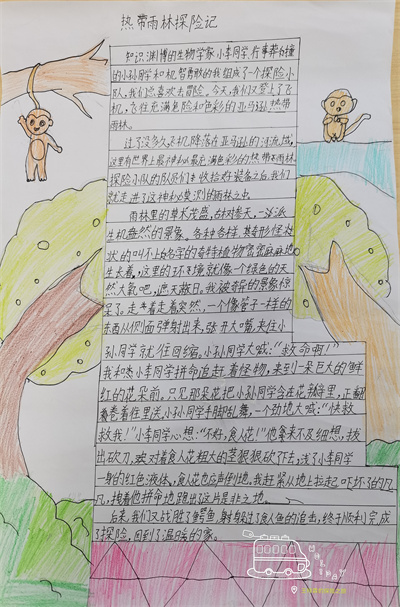 热带雨林探险记
知识渊博的生物学家小李同学、行事莽撞
的小孙同学和机智勇敢的我组成了一个探险小
队,我们总喜欢去冒险。今天,我们又登上了飞
机,飞往充满危险和色彩的亚马孙热带
雨林。
过了没多久飞机降落在亚马孙的河流域,
这里有世界上最神秘最充满色彩的热带雨林
探险小队的队员们收拾好装备之后,我们
就走进了这神秘莫测的雨林之中。
雨林里的草木茂盛,古树参天,一派
生机盎然的景象。各种各样、其形怪
状的叫不上名字的奇特植物密密麻麻地
生长着,这里的环境就像一个绿色的天
然大氧吧,遮天蔽日。我被奇的景象惊
呆了。走着走着突然,一个像管子一样的
东西从侧面弹射出来,张开大嘴,夹住小
孙同学就往回缩。小孙同学大喊:“救命啊!”
我和李小同学拼命追赶着怪物,来到一朵巨大的鲜
红的花朵前。只见那朵花把小孙同学含在花瓣里,正翻
卷着往里送小孙同学手脚乱舞,一个劲地大喊:“快救
救我!”小李同学心想:“不好,食人花!”他拿来不及细想,拔
出砍刀,对着食人花粗大的茎狠狠砍了下去,溅了小李同学
一身的红色液体,食人花也应声倒地,我赶紧从地上拉起吓坏了的
凡,拽着他拼命地跑出了这片是非之地。
后来,我们又战胜了鳄鱼,躲过了食人鱼的追击,终于顺利完成
了探险,回到了温暖的家。